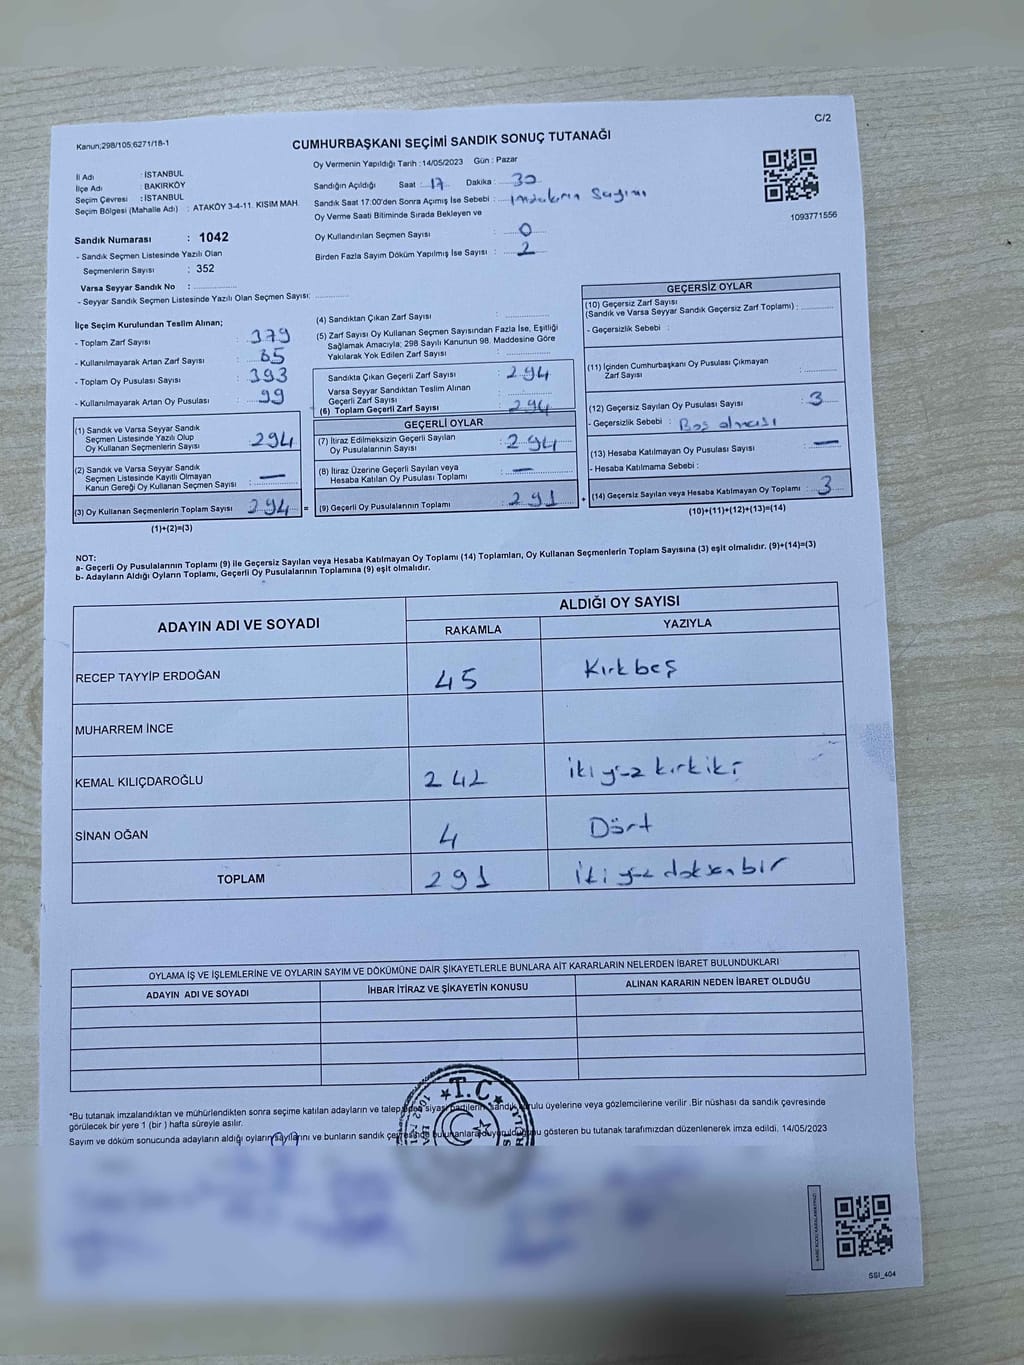 C/2
Kanun,298/105,6271/18-1
CUMHURBAŞKANI SEÇİMİ SANDIK SONUÇ TUTANAĞI
Oy Vermenin Yapıldığı Tarih : 14/05/2023 Gün : Pazar
İl Adı : İSTANBUL
İlçe Adı : BAKIRKÖY
Seçim Çevresi : İSTANBUL
Seçim Bölgesi (Mahalle Adı) : ATAKÖY 3-4-11. KISIM MAH.
Sandık Numarası : 1042
- Sandık Seçmen Listesinde Yazılı Olan
Seçmenlerin Sayısı : 352
Varsa Seyyar Sandık No :
- Seyyar Sandık Seçmen Listesinde Yazılı Olan Seçmen Sayısı:
Sandığın Açıldığı Saat : 17 Dakika : 30
Sandık Saat 17:00'den Sonra Açımış İse Sebebi : Sayımı
Oy Verme Saati Bitiminde Sırada Bekleyen ve
Oy Kullandırılan Seçmen Sayısı : 0
Birden Fazla Sayım Döküm Yapılmış İse Sayısı : 2
1093771556
İlçe Seçim Kurulundan Teslim Alınan;
- Toplam Zarf Sayısı : 379
- Kullanılmayarak Artan Zarf Sayısı : 85
- Toplam Oy Pusulası Sayısı : 393
- Kullanılmayarak Artan Oy Pusulası : 99
(1) Sandık ve Varsa Seyyar Sandık
Seçmen Listesinde Yazılı Olup
Oy Kullanan Seçmenlerin Sayısı : 294
(2) Sandık ve Varsa Seyyar Sandık
Seçmen Listesinde Kayıtlı Olmayan
Kanun Gereği Oy Kullanan Seçmen Sayısı : —
(3) Oy Kullanan Seçmenlerin Toplam Sayısı : 294 =
(1)+(2)=(3)
(4) Sandıktan Çıkan Zarf Sayısı :
(5) Zarf Sayısı Oy Kullanan Seçmen Sayısından Fazla İse, Eşitliği
Sağlamak Amacıyla; 298 Sayılı Kanunun 98. Maddesine Göre
Yakılarak Yok Edilen Zarf Sayısı :
Sandıkta Çıkan Geçerli Zarf Sayısı : 294
Varsa Seyyar Sandıktan Teslim Alınan
Geçerli Zarf Sayısı :
(6) Toplam Geçerli Zarf Sayısı : 294
GEÇERLİ OYLAR
(7) İtiraz Edilmeksizin Geçerli Sayılan
Oy Pusulalarının Sayısı : 294
(8) İtiraz Üzerine Geçerli Sayılan veya
Hesaba Katılan Oy Pusulası Toplamı : —
(9) Geçerli Oy Pusulalarının Toplamı : 291 +
GEÇERSİZ OYLAR
(10) Geçersiz Zarf Sayısı
(Sandık ve Varsa Seyyar Sandık Geçersiz Zarf Toplamı) :
- Geçersizlik Sebebi :
(11) İçinden Cumhurbaşkanı Oy Pusulası Çıkmayan
Zarf Sayısı :
(12) Geçersiz Sayılan Oy Pusulası Sayısı : 3
- Geçersizlik Sebebi : Boş olması
(13) Hesaba Katılmayan Oy Pusulası Sayısı : —
- Hesaba Katılmama Sebebi :
(14) Geçersiz Sayılan veya Hesaba Katılmayan Oy Toplamı : 3
(10)+(11)+(12)+(13)=(14)
NOT:
a- Geçerli Oy Pusulalarının Toplamı (9) ile Geçersiz Sayılan veya Hesaba Katılmayan Oy Toplamı (14) Toplamları, Oy Kullanan Seçmenlerin Toplam Sayısına (3) eşit olmalıdır. (9)+(14)=(3)
b- Adayların Aldığı Oyların Toplamı, Geçerli Oy Pusulalarının Toplamına (9) eşit olmalıdır.
ADAYIN ADI VE SOYADI ALDIĞI OY SAYISI
RAKAMLA YAZIYLA
RECEP TAYYİP ERDOĞAN 45 Kırkbeş
MUHARREM İNCE
KEMAL KILIÇDAROĞLU 242 ikiyüz kırkiki
SİNAN OĞAN 4 Dört
TOPLAM 291 ikiyüz doksanbir
OYLAMA İŞ VE İŞLEMLERİNE VE OYLARIN SAYIM VE DÖKÜMÜNE DAİR ŞİKAYETLERLE BUNLARA AİT KARARLARIN NELERDEN İBARET BULUNDUKLARI
ADAYIN ADI VE SOYADI İHBAR İTİRAZ VE ŞİKAYETİN KONUSU ALINAN KARARIN NEDEN İBARET OLDUĞU
T.C.
*Bu tutanak imzalandıktan ve mühürlendikten sonra seçime katılan adayların ve talep eden siyasi partilerin sandık kurulu üyelerine veya gözlemcilerine verilir .Bir nüshası da sandık çevresinde
görülecek bir yere 1 (bir ) hafta süreyle asılır.
Sayım ve döküm sonucunda adayların aldığı oyların sayılarını ve bunların sandık çevresinde bulunanlara duyurulduğunu gösteren bu tutanak tarafımızdan düzenlenerek imza edildi. 14/05/2023
SSI_404